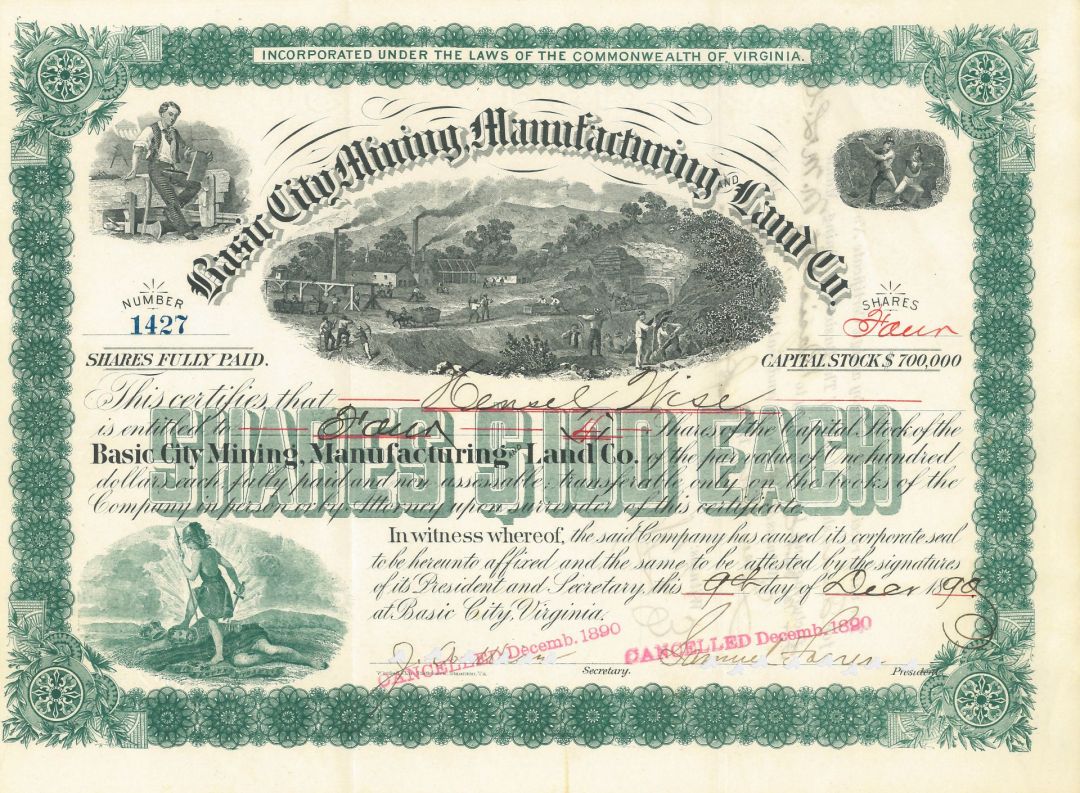 INCORPORATED UNDER THE LAWS OF THE COMMONWEALTH OF VIRGINIA.
Basic City Mining, Manufacturing AND Land Co.
NUMBER
1427
SHARES
Four
SHARES FULLY PAID.
CAPITAL STOCK $ 700,000
This certifies that Hensel Wise
is entitled to Four 4 Shares of the Capital Stock of the
SHARES $100 EACH
Basic City Mining, Manufacturing and Land Co. of the par value of One hundred
dollars each fully paid and non assessable, transferable only on the books of the
Company in person or by Attorney upon surrender of this certificate.
In witness whereof, the said Company has caused its corporate seal
to be hereunto affixed and the same to be attested by the signatures
of its President and Secretary, this 9th day of Decr 1890
at Basic City, Virginia.
CANCELLED Decemb. 1890
CANCELLED Decemb. 1890
Samuel
Secretary.
President